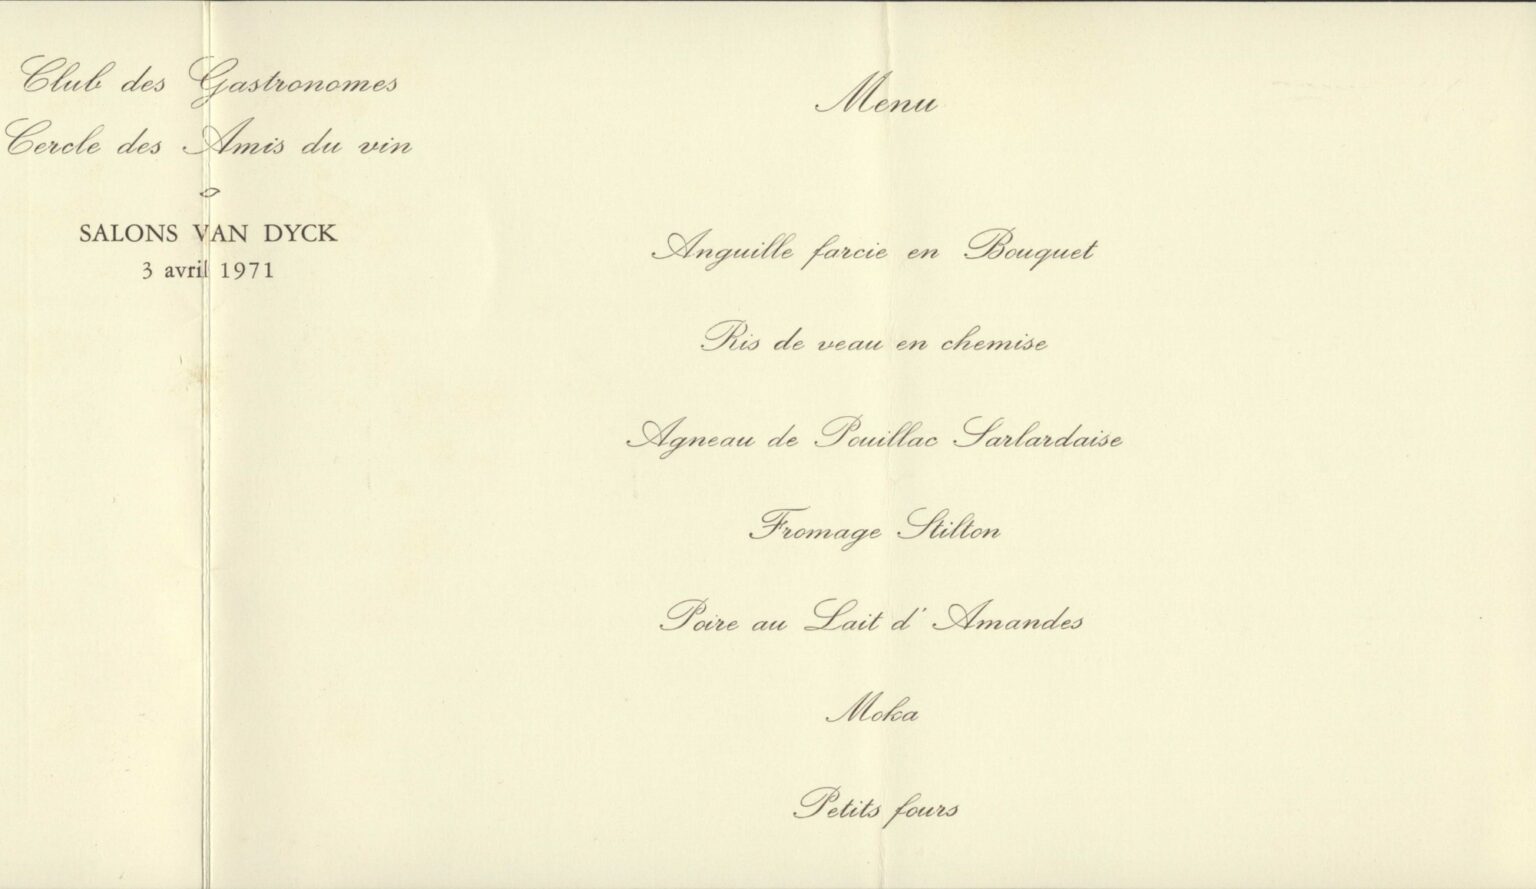 Club des Gastronomes
Cercle des Amis du vin
SALONS VAN DYCK
3 avril 1971
Menu
Anguille farcie en Bouquet
Ris de veau en chemise
Agneau de Pouillac Sarlardaise
Fromage Stilton
Poire au Lait d' Amandes
Moka
Petits fours